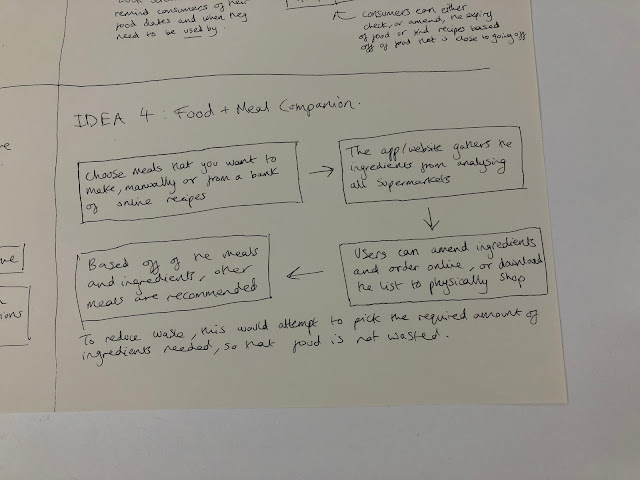 remind consumers of their
food dates and when they
need to be used by
Consumers can either
check, or amend, the expiry
of food or find recipes based
off of food that is close to going off
IDEA 4 : Food + Meal Companion.
Choose meals that you want to
make, manually or from a bank
of online recipes
The app/website gathers the
ingredients from analysing
all supermarkets
Users can amend ingredients
and order online, or download
the list to physically shop
Based off of the meals
and ingredients, other
meals are recommended
To reduce waste, this would attempt to pick the required amount of
ingredients needed, so that food is not wasted.